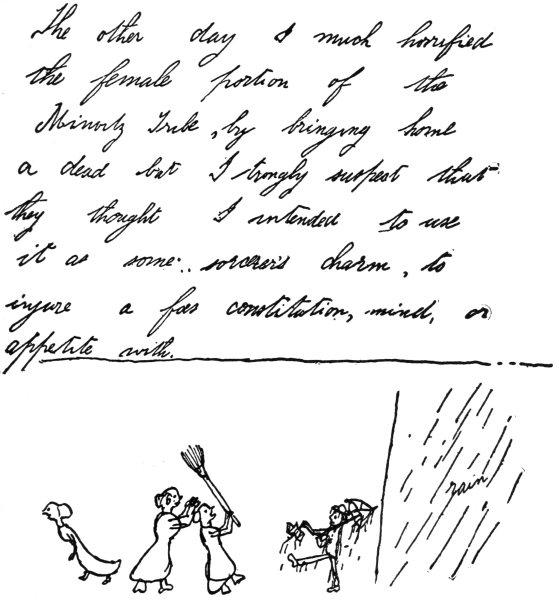 The other day I much horrified
the female portion of the
Minvitz Tribe, by bringing home
a dead bat I strongly suspect that
they thought I intended to use
it as some sorcerer's charm, to
injure a foes constitution, mind, or
appetite with.
rain